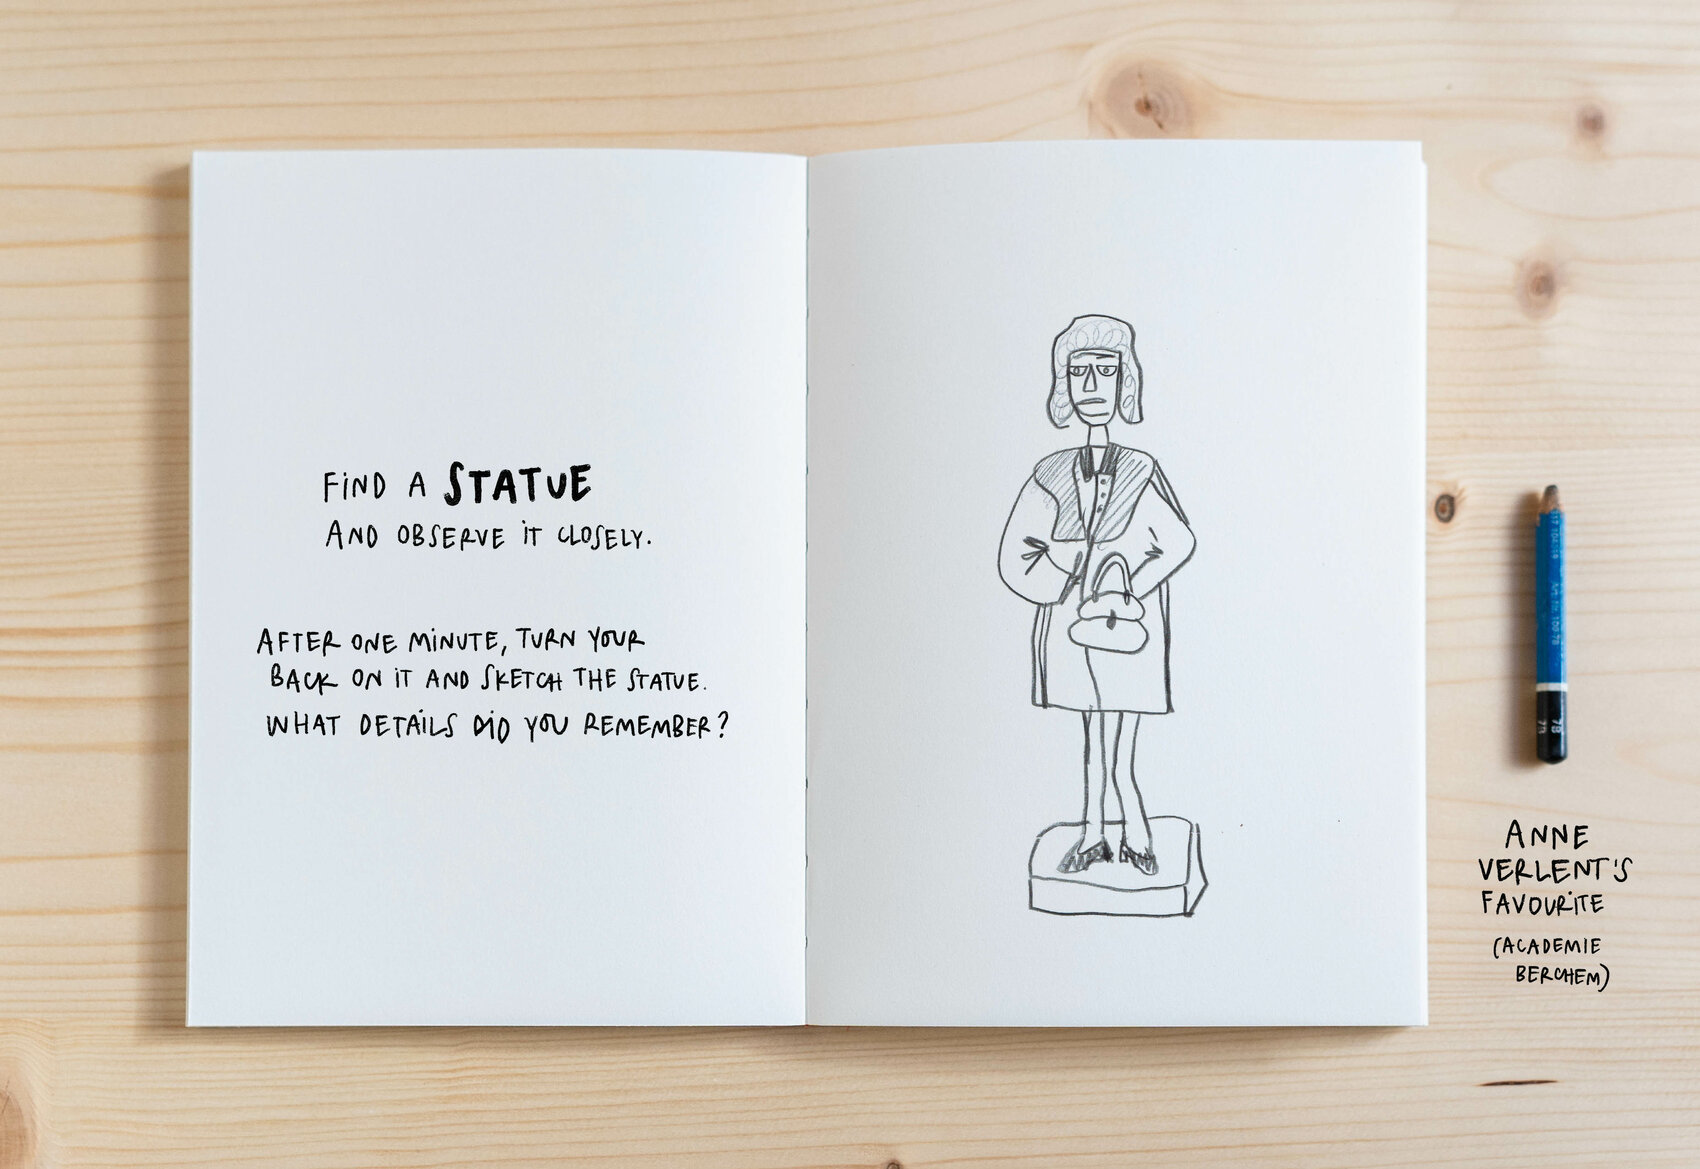 FIND A STATUE
AND OBSERVE IT CLOSELY.
AFTER ONE MINUTE, TURN YOUR
BACK ON IT AND SKETCH THE STATUE.
WHAT DETAILS DID YOU REMEMBER?
7B
ANNE
VERLENT'S
FAVOURITE
(ACADEMIE
BERCHEM)